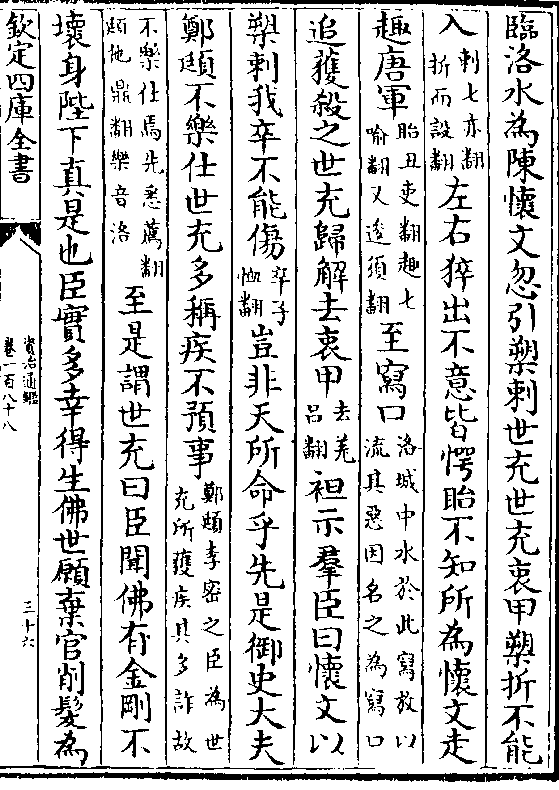 臨洛水為陳懷文忽引槊刺世充世充衷甲槊折不能
入刺七亦翻折而設翻左右猝出不意皆愕眙不知所為懷文走
趣唐軍眙丑吏翻趣七喻翻又逡須翻至寫口洛城中水於此寫放以流其惡因名之為寫口
追獲殺之世充歸解去衷甲去羌呂翻袒示羣臣曰懷文以
槊刺我卒不能傷卒子恤翻豈非天所命乎先是御史大夫
鄭頲不樂仕世充多稱疾不預事鄭頲李密之臣為世充所獲疾其多詐故
不樂仕焉先悉薦翻頲他鼎翻樂音洛至是謂世充曰臣聞佛有金剛不
壞身陛下真是也臣實多幸得生佛世願棄官削髮為
欽定四庫全書
資治通鑑
卷一百八十八
三十六